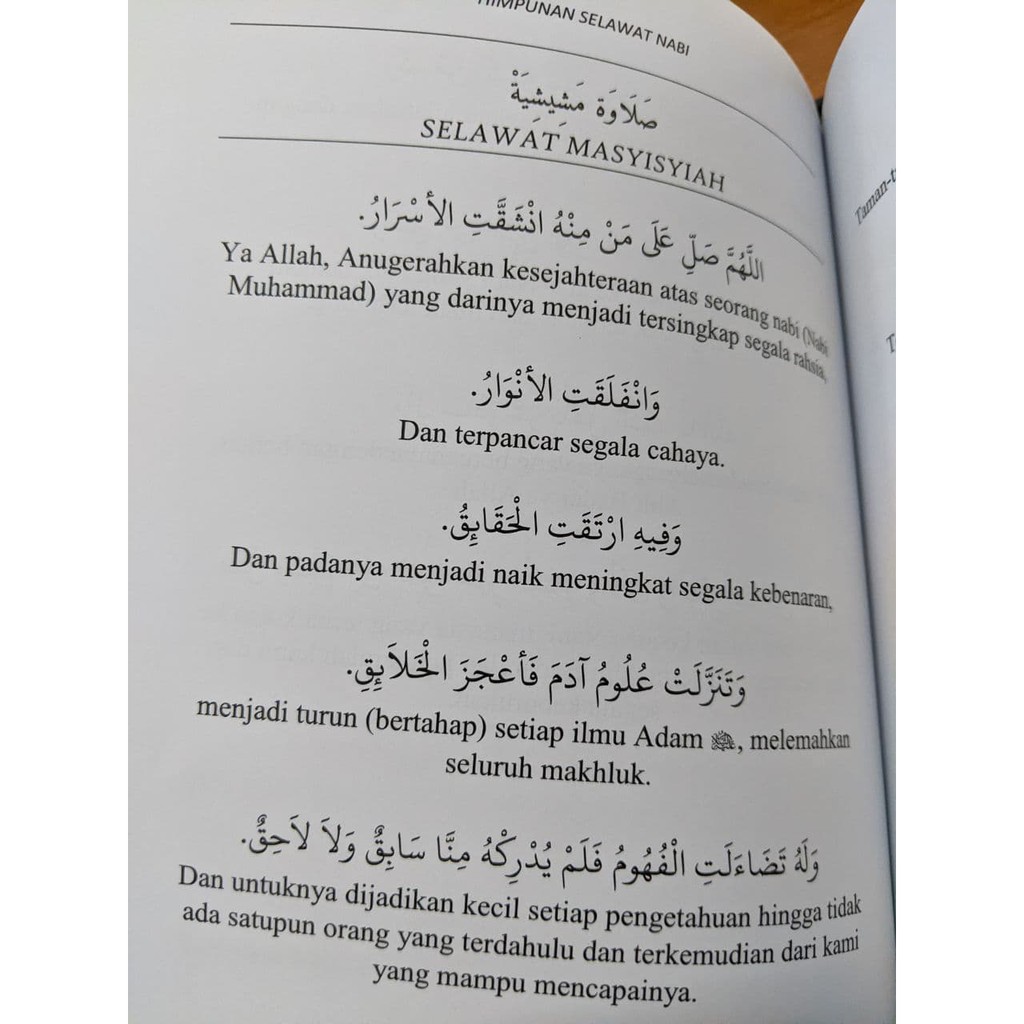 HIMPUNAN SELAWAT NABI
صَلَاوَة مَشِيشِيَةْ
SELAWAT MASYISYIAH
اللَّهُمَّ صَلِّ عَلَى مَنْ مِنْهُ انْشَقَّتِ الأَسْرَارُ.
Ya Allah, Anugerahkan kesejahteraan atas seorang nabi (Nabi
Muhammad) yang darinya menjadi tersingkap segala rahsia,
وَانْفَلَقَتِ الأَنْوَارُ.
Dan terpancar segala cahaya.
وَفِيهِ ارْتَقَتِ الْحَقَايِٕقُ.
Dan padanya menjadi naik meningkat segala kebenaran,
وَتَنَزَّلَتْ عُلُومُ آدَمَ فَأَعْجَزَ الْخَلاَيِٕقِ.
menjadi turun (bertahap) setiap ilmu Adam ﷺ, melemahkan
seluruh makhluk.
وَلَهُ تَضَاءَلَتِ الْفُهُومُ فَلَمْ يُدْرِكْهُ مِنَّا سَابِقٌ وَلاَ لاَحِقٌ.
Dan untuknya dijadikan kecil setiap pengetahuan hingga tidak
ada satupun orang yang terdahulu dan terkemudian dari kami
yang mampu mencapainya.
Taman-t